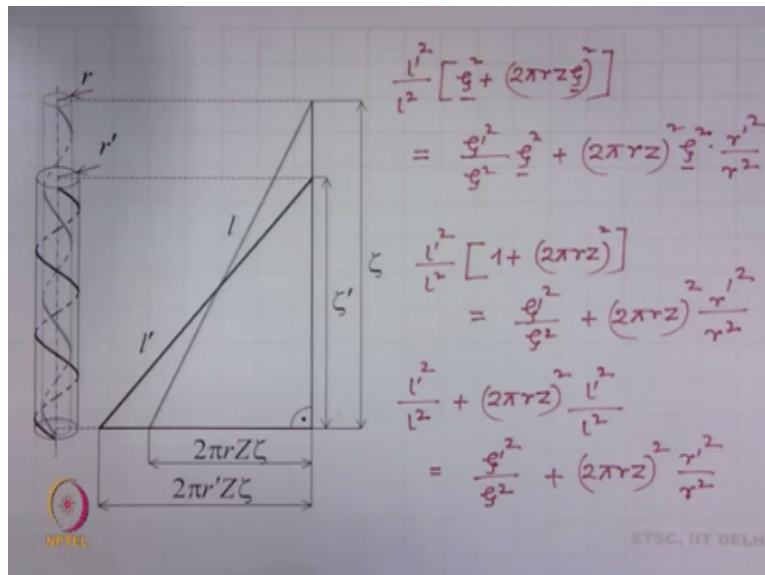 r
r'
l
l'
ζ'
ζ
2πrZζ
2πr'Zζ
l'²/l² [ξ² + (2πrzξ)²]
= ξ'²/ξ² ξ² + (2πrz)² ξ² · r'²/r²
l'²/l² [1 + (2πrz)²]
= ξ'²/ξ² + (2πrz)² r'²/r²
l'²/l² + (2πrz)² l'²/l²
= ξ'²/ξ² + (2πrz)² r'²/r²
NPTEL
ETSC, IIT DELH